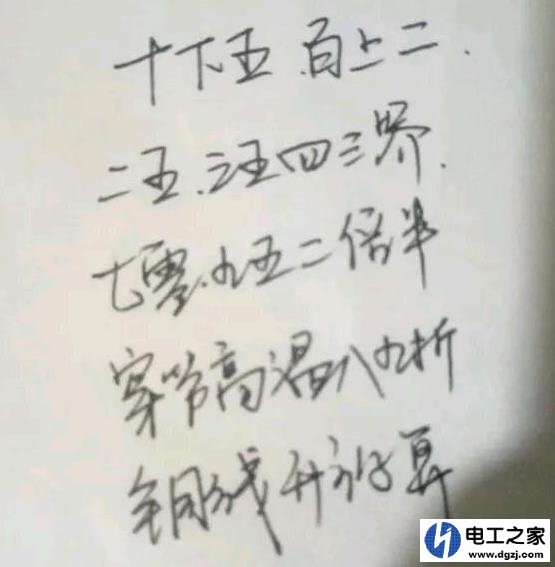 十下五.百上二.
二五.三五四三界.
七零.九五二倍半
穿管高温八九折
铜线升级算
电工之家
www.dgzj.com